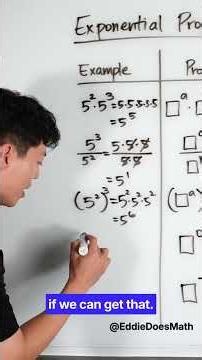 Exponential Pro
Example
5² · 5³ = 5·5·5·5·5
= 5⁵
5³/5² = 5·5·5/5·5
= 5¹
(5²)³ = 5²·5²·5²
= 5⁶
if we can get that.
@EddieDoesMath